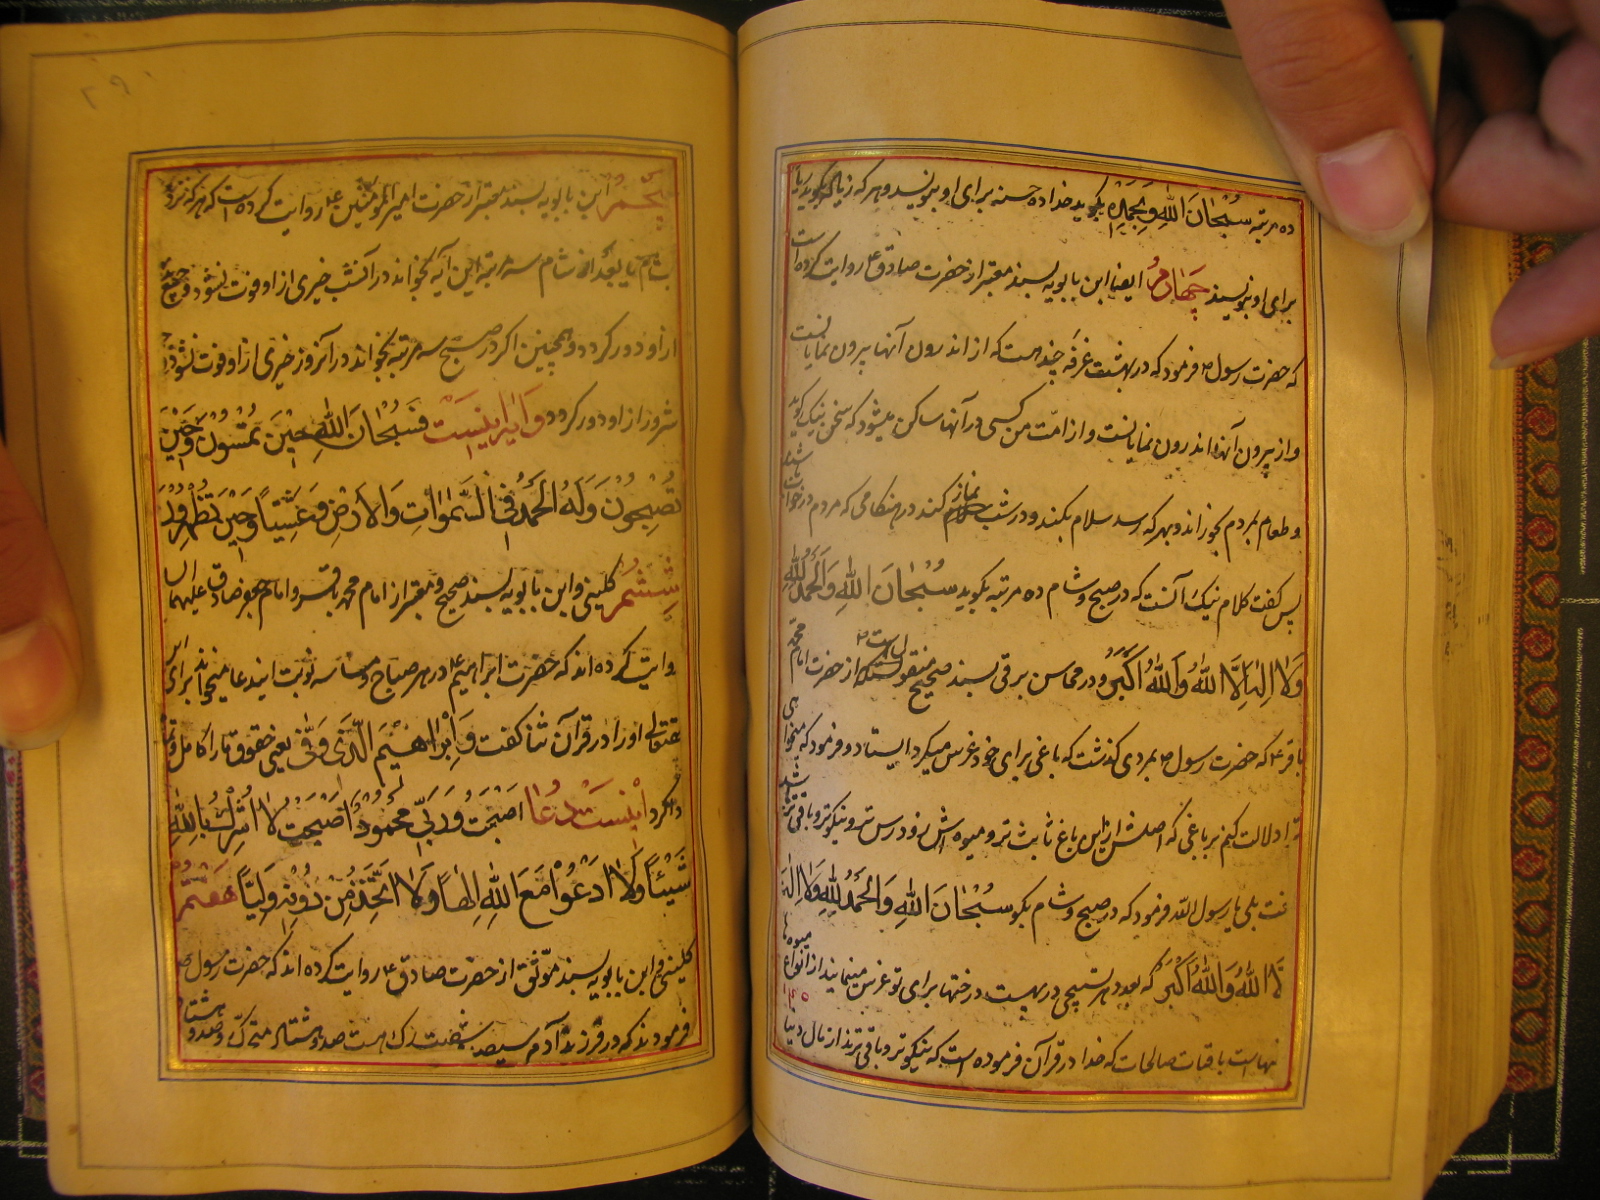 ده مرتبه سُبْحٰانَ اللّهِ وَبِحَمْدِهِ بگوید خدا ده حسنه برای او بنویسد و هر که زیاد گوید زیاده
برای او بنویسند چَهٰارمُ ایضا ابن بابویه بسند معتبر از حضرت صادق ع روایت کرده است
که حضرت رسول ص فرمود که در بهشت غرفه چند هست که از اندرون آنها بیرون نمایانست
و از بیرون آنها اندرون نمایانست و از امّت من کسی در آنها ساکن میشود که سخن نیک گوید
و طعام بمردم بخوراند و بهر که رسد سلام بکند و در شب نماز کند در هنگامی که مردم در خواب باشند
پس گفت کلام نیک آنست که در صبح و شام ده مرتبه بگوید سُبْحٰانَ اللّهِ وَالْحَمْدُ لِلّهِ
وَلٰا اِلٰهَ اِلَّا اللّهُ وَاللّهُ اَكْبَرُ و در محاسن برقی بسند صحیح منقولست از حضرت امام محمّد
باقر ع که حضرت رسول ص بمردی گذشت که باغی برای خود غرس میکرد ایستاد و فرمود که میخواهی
ترا دلالت کنم بر باغی که اصلش از این باغ ثابت تر و میوه اش زودرس تر و نیکوتر و باقی تر باشد
گفت بلی یا رسول اللّه فرمود که در صبح و شام بگو سُبْحٰانَ اللّهِ وَالْحَمْدُ لِلّهِ وَلٰا اِلٰهَ
اِلَّا اللّهُ وَاللّهُ اَكْبَرُ که بعدد هر تسبیحی در بهشت درختها برای تو غرس مینمایند از انواع میوه ها
اینهاست باقیات صالحات که خدا در قرآن فرموده است که نیکوتر و باقی ترند از مال دنیا
۲۹
پنجمُ ابن بابویه بسند معتبر از حضرت امیر المؤمنین ع روایت کرده است که هر که نزد
شام یا بعد از شام سه مرتبه این آیه بخواند در آنشب خیری از او فوت نشود و جمیع
از او دور گردد و همچنین اگر در صبح سه مرتبه بخواند در آنروز خیری از او فوت نشود و
شر روز از او دور گردد وَ اٰیه اینست فَسُبْحٰانَ اللّهِ حِيْنَ تُمْسُونَ وَحِيْنَ
تُصْبِحُونَ وَلَهُ الْحَمْدُ فِي السَّمٰوٰاتِ وَالْاَرْضِ وَعَشِيّاً وَحِيْنَ تُظْهِرُونَ
شِشُمْ کلینی و ابن بابویه بسند صحیح و معتبر از امام محمد باقر و امام جعفر صادق علیهما السلام
روایت کرده اند که حضرت ابراهیم ع در هر صباح و مسا سه نوبت ایندعا میخواند برای این
حقتعالی او را در قرآن ثنا گفت وَاِبْرٰاهِيْمَ الَّذِى وَفّٰى یعنی حقوق ما را کامل و تمام
ادا کرد ایْنست دُعٰا اَصْبَحْتُ وَرَبّي مَحْمُودٌ اَصْبَحْتُ لٰا اُشْرِكُ بِاللّهِ
شَيْئاً وَلٰا اَدْعُوا مَعَ اللّهِ اِلٰهاً وَلٰا اَتَّخِذُ مِنْ دُونِهِ وَلِيّاً هَفتمُ
کلینی و ابن بابویه بسند موثّق از حضرت صادق ع روایت کرده اند که حضرت رسول ص
فرمودند که در فرزند آدم سیصد و شصت رک هست صد و هشتاد متحرک و صد و هشتاد